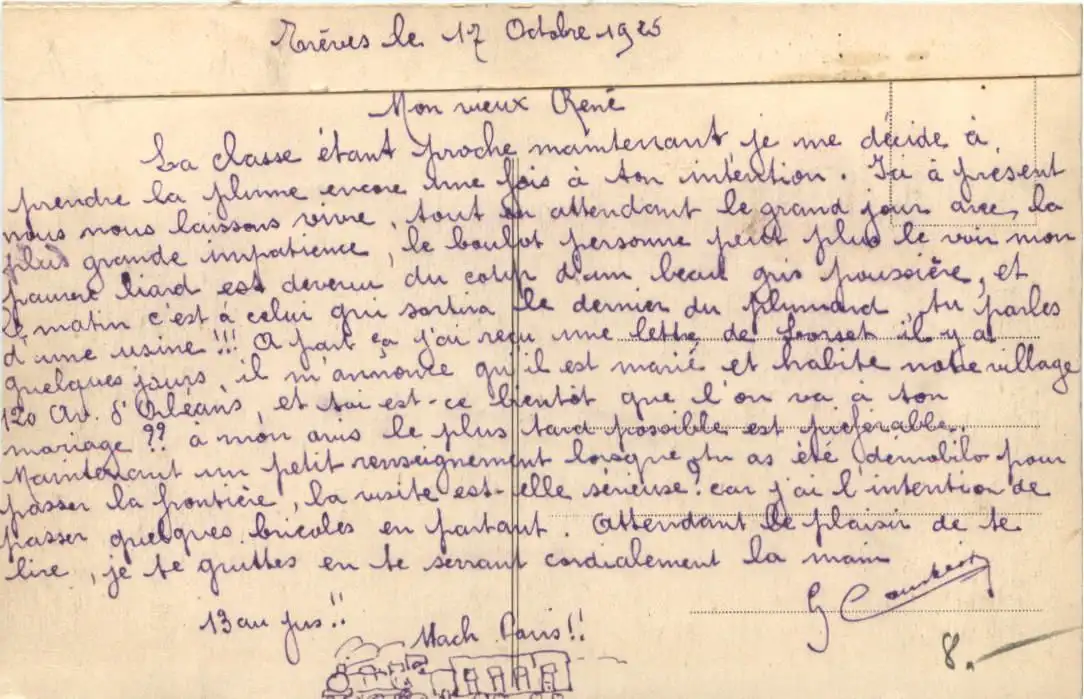 Trèves le 17 Octobre 1925
Mon vieux René
La classe étant proche maintenant, je me décide à
prendre la plume encore une fois à ton intention. Ici à présent
nous nous laissons vivre, tout en attendant le grand jour avec la
plus grande impatience, le boulot personne peut plus le voir mon
pauvre liard est devenu du coup d'un beau gris poussière, et
le matin c'est à celui qui sortira le dernier du plumard, tu parles
d'une usine !!! A part ça j'ai reçu une lettre de il y a
quelques jours, il m'annonce qu'il est marié et habite notre village
120 Av. d'Orléans, et toi est-ce bientôt que l'on va à ton
mariage ?? à mon avis le plus tard possible est préférable.
Maintenant un petit renseignement lorsque tu as été démobilo pour
passer la frontière, la visite est-elle sérieuse? car j'ai l'intention de
passer quelques bricoles en partant. Attendant le plaisir de te
lire, je te quittes en te serrant cordialement la main
G
13 au jus !!
Nach Paris !!
8.